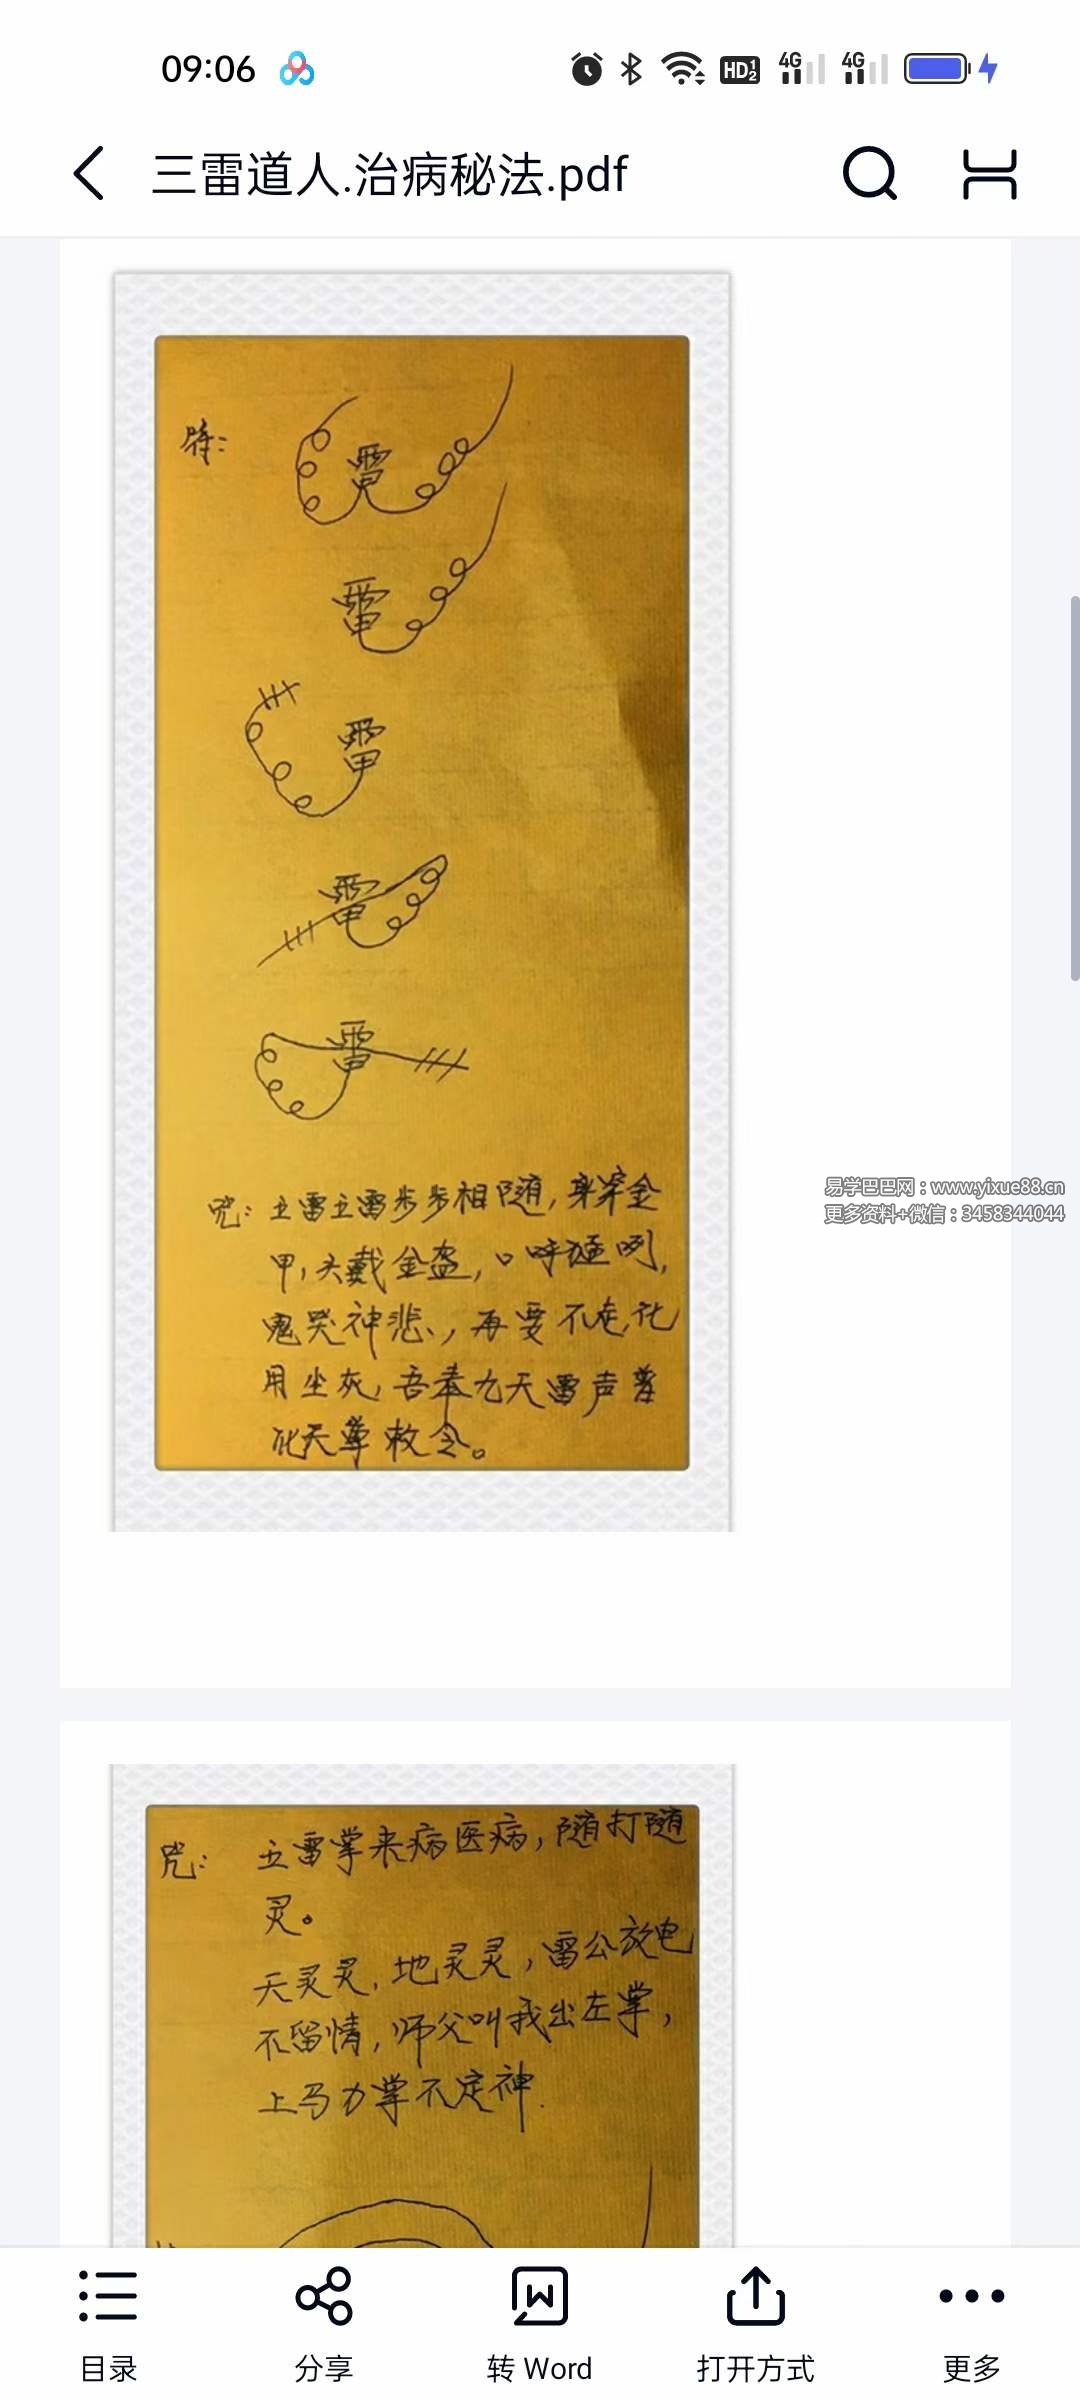 09:06
HD 1 2 4G 4G
三雷道人.治病秘法.pdf
符:
雷
雷
雷
雷
雷
咒: 五雷五雷步步相随,身穿金
甲,头戴金盔,口呼
鬼哭神悲,再要不走,化
用尘灰,吾奉九天雷声普
化天尊敕令。
易学巴巴网:www.yixue88.cn
更多资料+微信:3458344044
咒: 五雷掌来病医病,随打随
灵。
天灵灵,地灵灵,雷公放电
不留情,师父叫我出左掌,
上马力掌不定神.
目录
分享
转 Word
打开方式
更多